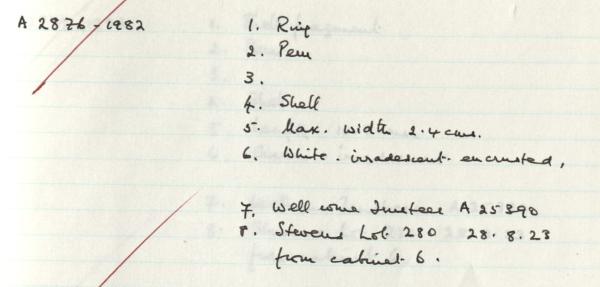 A 2876-1982 1. Ring
2. Peru
3.
4. Shell
5. Max. width 2.4 cms.
6. White. irradescent. encrusted,
7. Wellcome Trustees A 25390
8. Stevens Lot 280 28.8.23
from cabinet 6.